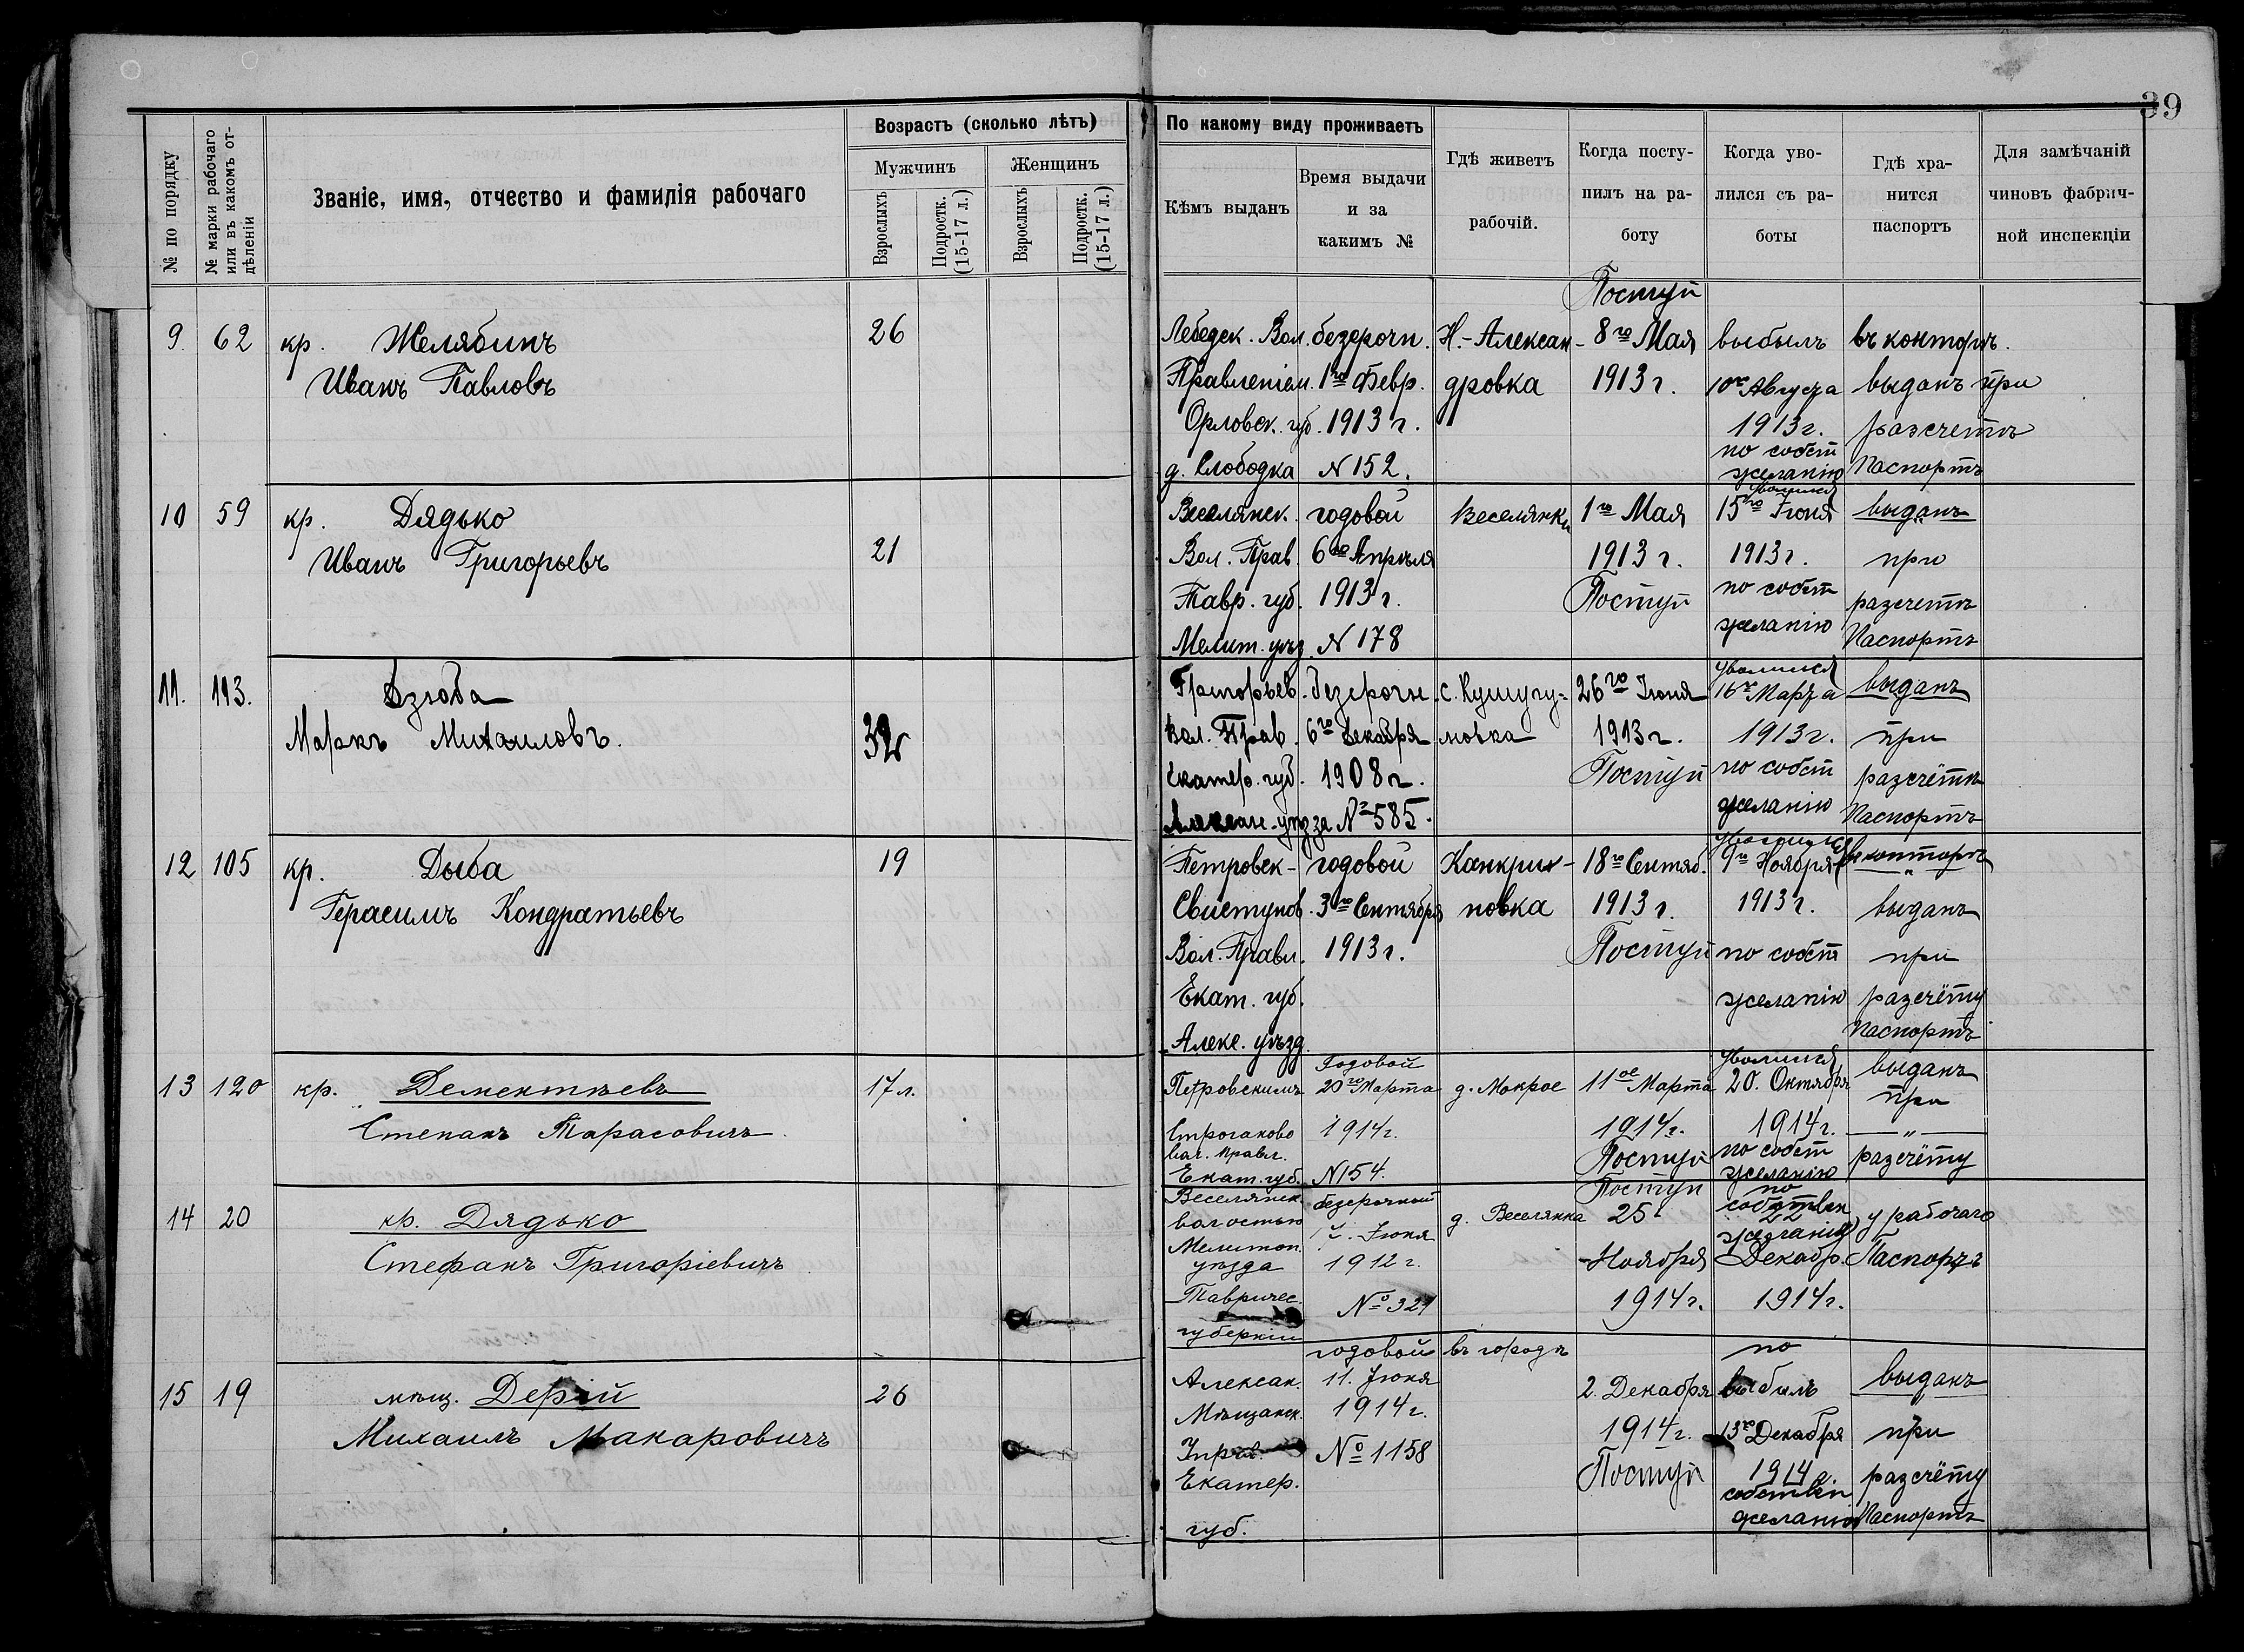 39
№ по порядку
№ марки рабочаго или въ какомъ отдѣленіи
Званіе, имя, отчество и фамилія рабочаго
Возрастъ (сколько лѣтъ)
Мужчинъ
Женщинъ
Взрослыхъ
Подростк. (15-17 л.)
Взрослыхъ
Подростк. (15-17 л.)
По какому виду проживаетъ
Кѣмъ выданъ
Время выдачи
и за
какимъ №
Гдѣ живетъ
рабочій.
Когда посту-
пилъ на ра-
боту
Когда уво-
лился съ ра-
боты
Гдѣ хра-
нится
паспортъ
Для замѣчаній
чиновъ фабрич-
ной инспекціи
9. 62 кр. Желябинъ
Иванъ Павловъ
26
Лебедек. Вол.
Правленіем.
Орловск. губ.
д. Слободка
безсрочн.
1го Февр.
1913 г.
N 152.
Н.-Алексан-
дровка
Поступ
8го Мая
1913 г.
выбылъ
10го Августа
1913 г.
по собст
желанію
въ конторѣ.
выданъ при
разсчетѣ
Паспортъ
10 59 кр. Дядько
Иванъ Григорьевъ
21
Веселянск.
Вол. Прав.
Тавр. губ.
Мелит. уѣз.
годовой
6го Апрѣля
1913 г.
N 178
Веселянка
1го Мая
1913 г.
Поступ
уволился
15го Іюня
1913 г.
по собст
желанію
выданъ
при
разсчетѣ
Паспортъ
11. 113. Дзюба
Маркъ Михаиловъ.
32
Григорьев.
Вол. Прав.
Екатер. губ.
Алексан. уѣз
безсрочн.
6го Декабря
1908 г.
за № 585.
с. Кушугу-
мовка
26го Іюня
1913 г.
Поступ
уволился
16го Марта
1913 г.
по собст
желанію
выданъ
при
разсчётѣ
Паспортъ
12 105 кр. Дыба
Герасимъ Кондратьевъ
19
Петровск-
Свистунов.
Вол. Правл.
Екат. губ.
Алекс. уѣзд.
годовой
3го Сентября
1913 г.
Канкрин-
новка
18го Сентяб.
1913 г.
Поступ
уволился
9го Ноября
1913 г.
по собст
желанію
въ конторѣ
выданъ
при
разсчёту
Паспортъ
13 120 кр. Дементьевъ
Степанъ Тарасовичъ.
17 л.
Петровскимъ
Строганово
вол. правл.
Екат. губ.
Годовой
20го Марта
1914 г.
N 154.
д. Мокрое
11ое Марта
1914 г.
Поступ
уволился
20. Октября
1914 г.
по собст
желанію
выданъ
при
— " —
разсчёту
14 20 кр. Дядько
Стефанъ Григоріевичъ
Веселянск
волостью
Мелитоп.
уѣзда
Тавричес.
губерніи
безсрочной
Іюня
1912 г.
№ 321
д. Веселянка
Поступ
25
Ноября
1914 г.
по
собствен
22
желанію
Декабр.
1914 г.
у рабочаго
Паспортъ
15 19 мѣщ. Дерій
Михаилъ Макаровичъ
26
Алексан.
Мѣщанск.
Управ.
Екатер.
губ.
годовой
11. Іюня
1914 г.
№ 1158
въ городѣ
2. Декабря
1914 г.
Поступ
по
выбылъ
13го Декабря
1914 г.
собствен
желанію
выданъ
при
разсчёту
Паспортъ